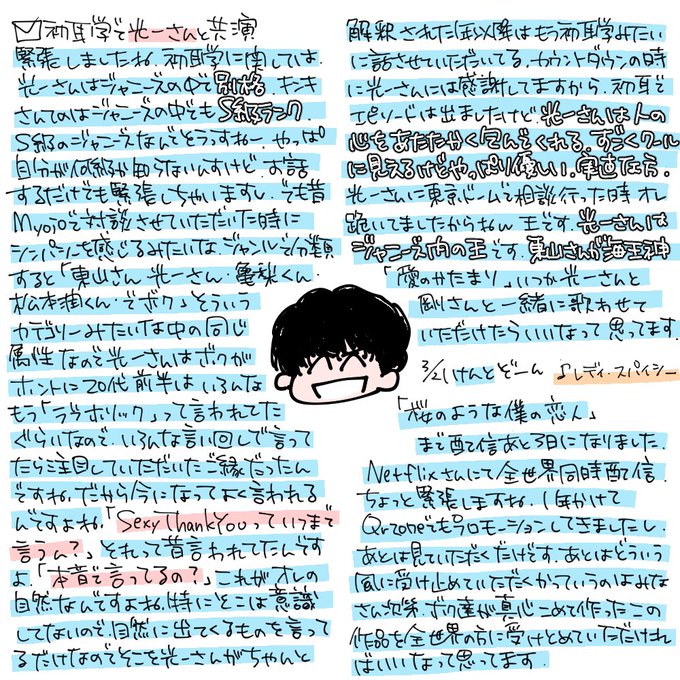 初耳学で光一さんと共演
緊張しましたね。初耳学に関しては。
光一さんはジャニーズの中で別格。キンキ
さんてのはジャニーズの中でもS級ランク。
S級のジャニーズなんでそうっすねー。やっぱ
自分が何級か知らないんすけど。お話
するだけでも緊張しちゃいますし。でも昔
Myojoで対談させていただいた時に
シンパシーを感じるみたいな。ジャンルで分類
すると「東山さん、光一さん、亀梨くん、
松本潤くん、でボク」そういう
カテゴリーみたいな中の同じ
属性なので光一さんはボクが
ホントに20代前半はいろんな
もう「ラブホリック」って言われてた
ぐらいなので。いろんな言い回しで言って
たら注目していただいたご縁だったん
ですよね。だから今になってよく言われる
んですよね。「Sexy Thank Youっていつまで
言うん?」それって昔言われてたんです
よ。「本音で言ってるの?」これがオレの
自然なんですよね。特にそこは意識
してないので。自然に出てくるものを言って
るだけなのでそこを光一さんがちゃんと
解釈された(笑)以降はもう初耳学みたい
に話させていただいてる。カウントダウンの時
に光一さんには感謝してますから。初耳で
エピソードは出ましたけど。光一さんは人の
心をあたたかく包んでくれる。すごくクール
に見えるけどやっぱり優しい。実直な方。
光一さんに東京ドームで相談行った時オレ
跪いてましたからねぇ。王です。光一さんは
ジャニーズ内の王です。東山さんが海王神
「愛のかたまり」いつか光一さんと
剛さんと一緒に歌わせて
いただけたらいいなって思ってます。
3/21けんとぞーん ♪レディ・スパイシー
「桜のような僕の恋人」
まで配信あと3日になりました。
Netflixさんにて全世界同時配信。
ちょっと緊張しますね。1年かけて
Qrzoneでもプロモーションしてきましたし。
あとは見ていただくだけです。あとはどういう
風に受け止めていただくかっていうのはみな
さん次第。ボク達が真心こめて作ったこの
作品を全世界の方に受けとめていただけれ
ばいいなって思ってます。